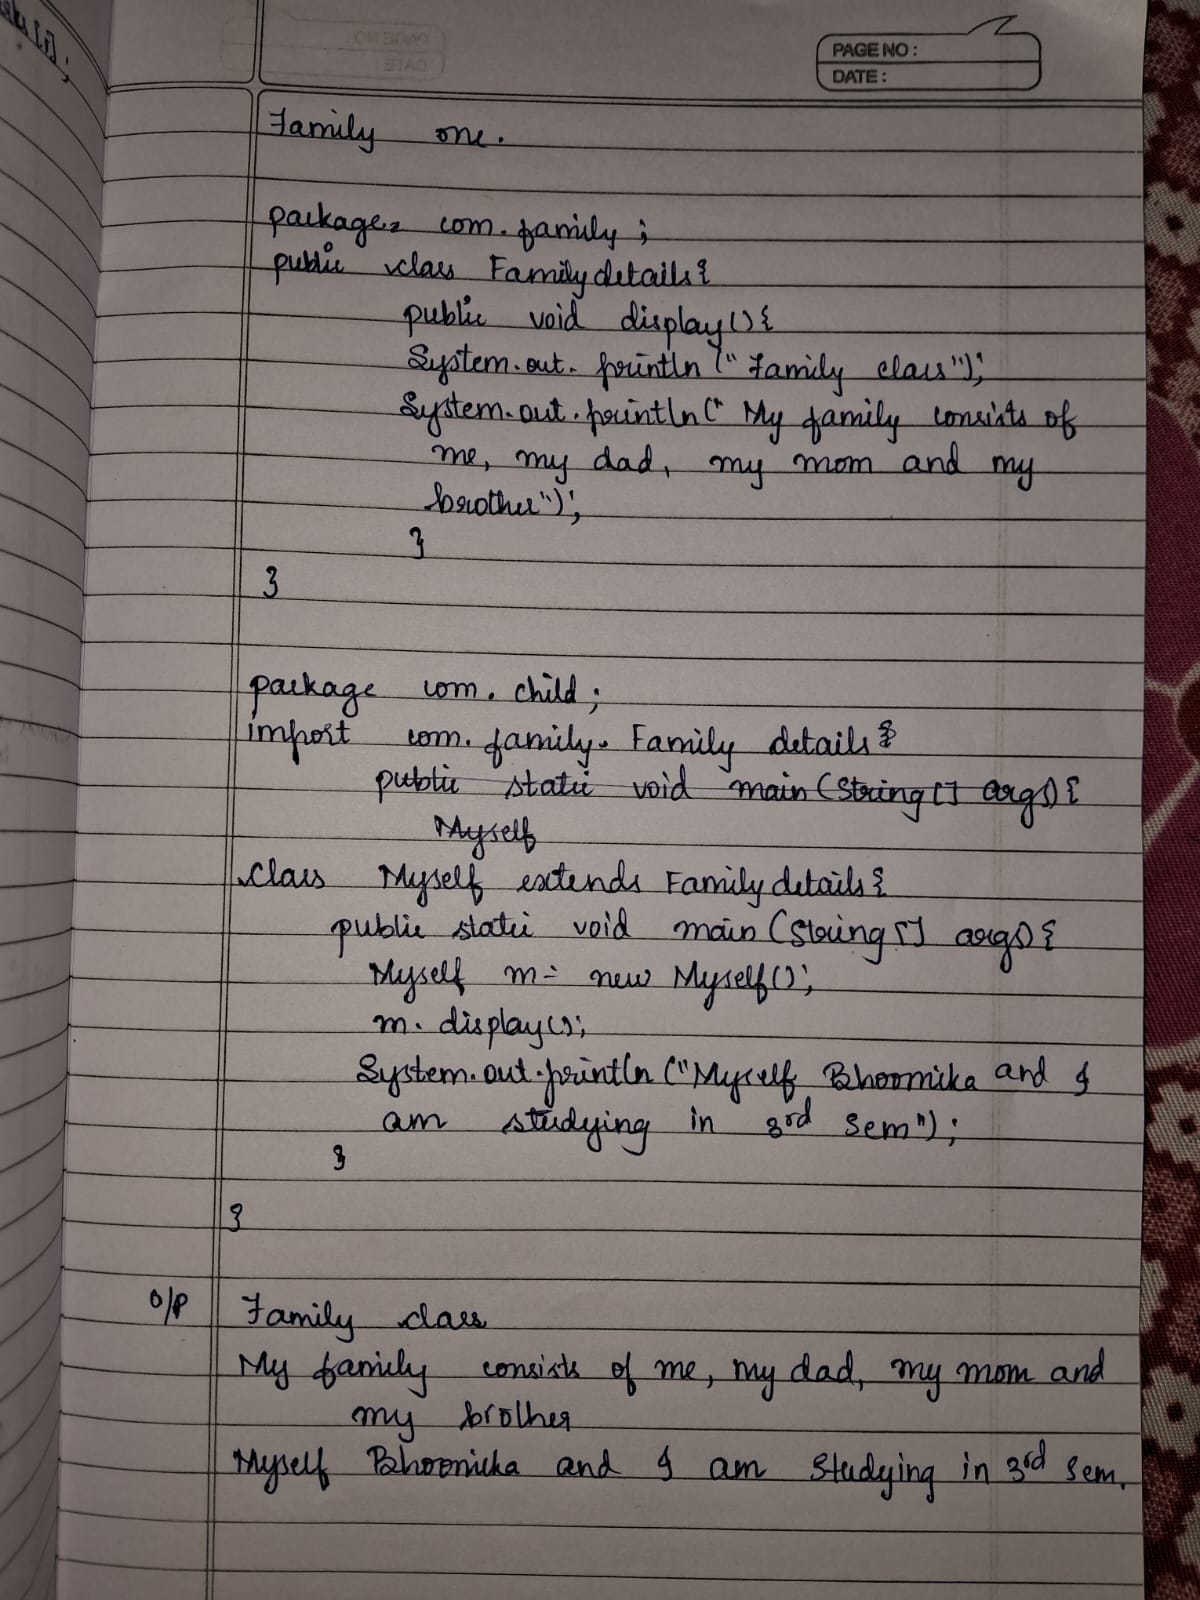 PAGE NO :
DATE :
Family one.
package com.family;
public class Familydetails{
public void display(){
System.out.println("Family class");
System.out.println(" My family consists of
me, my dad, my mom and my
brother");
}
}
package com.child;
import com.family.Family details;
public static void main(String[] args){
Myself
class Myself extends Familydetails{
public static void main(String[] args){
Myself m= new Myself();
m.display();
System.out.println("Myself Bhoomika and I
am studying in 3rd sem");
}
}
O/P Family class
My family consists of me, my dad, my mom and
my brother
Myself Bhoomika and I am studying in 3rd sem.